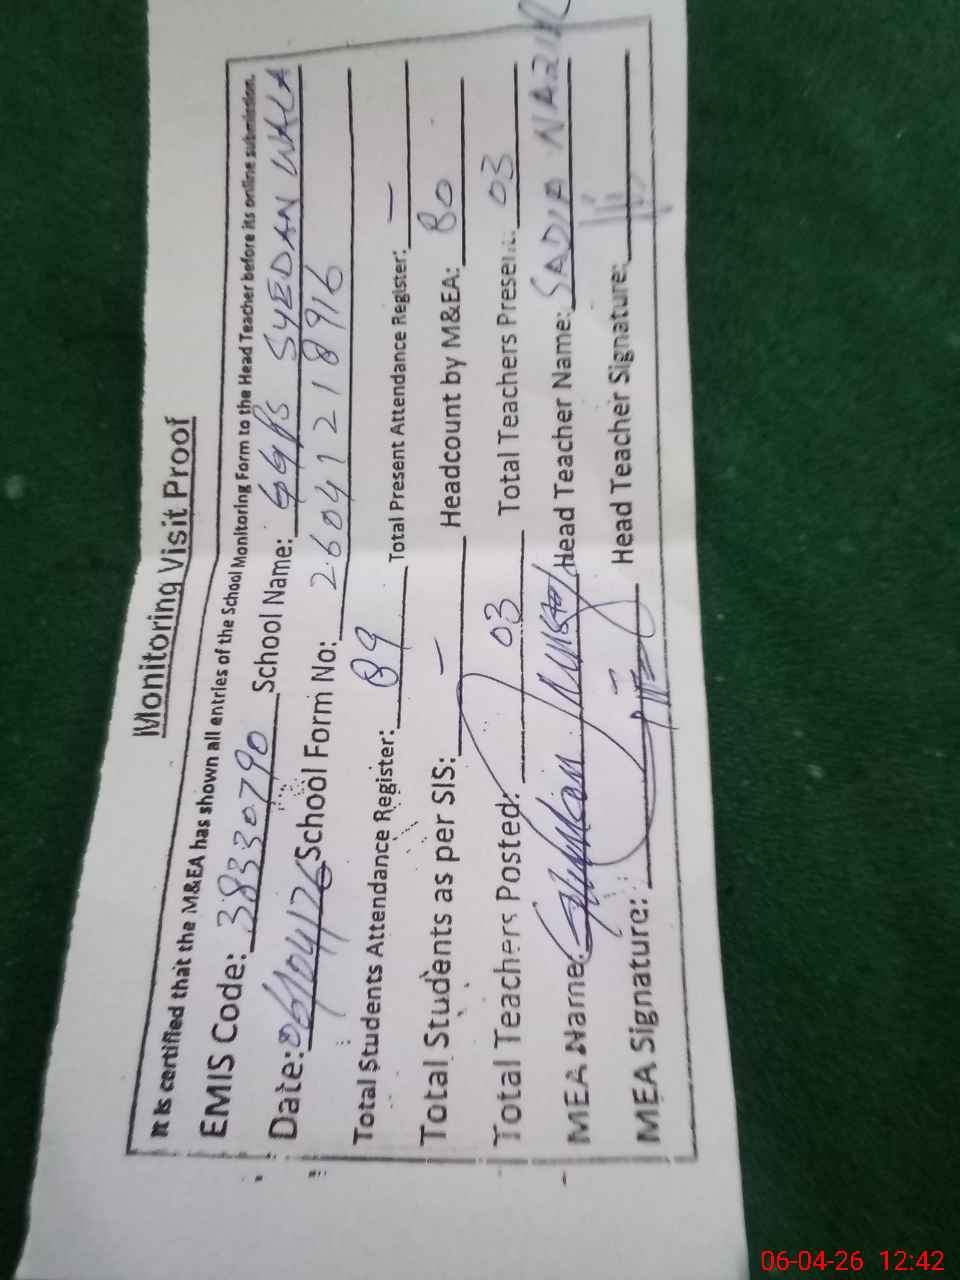 Monitoring Visit Proof
It is certified that the M&EA has shown all entries of the School Monitoring Form to the Head Teacher before its online submission.
EMIS Code: 38330790 School Name: GGPS SYEDAN WALA
Date: 06/04/26 School Form No: 26041218916
Total Students Attendance Register: 89 Total Present Attendance Register: —
Total Students as per SIS: — Headcount by M&EA: 80
Total Teachers Posted: 03 Total Teachers Present: 03
MEA Name: Head Teacher Name: SADIA NAZIR
MEA Signature: Head Teacher Signature:
06-04-26 12:42